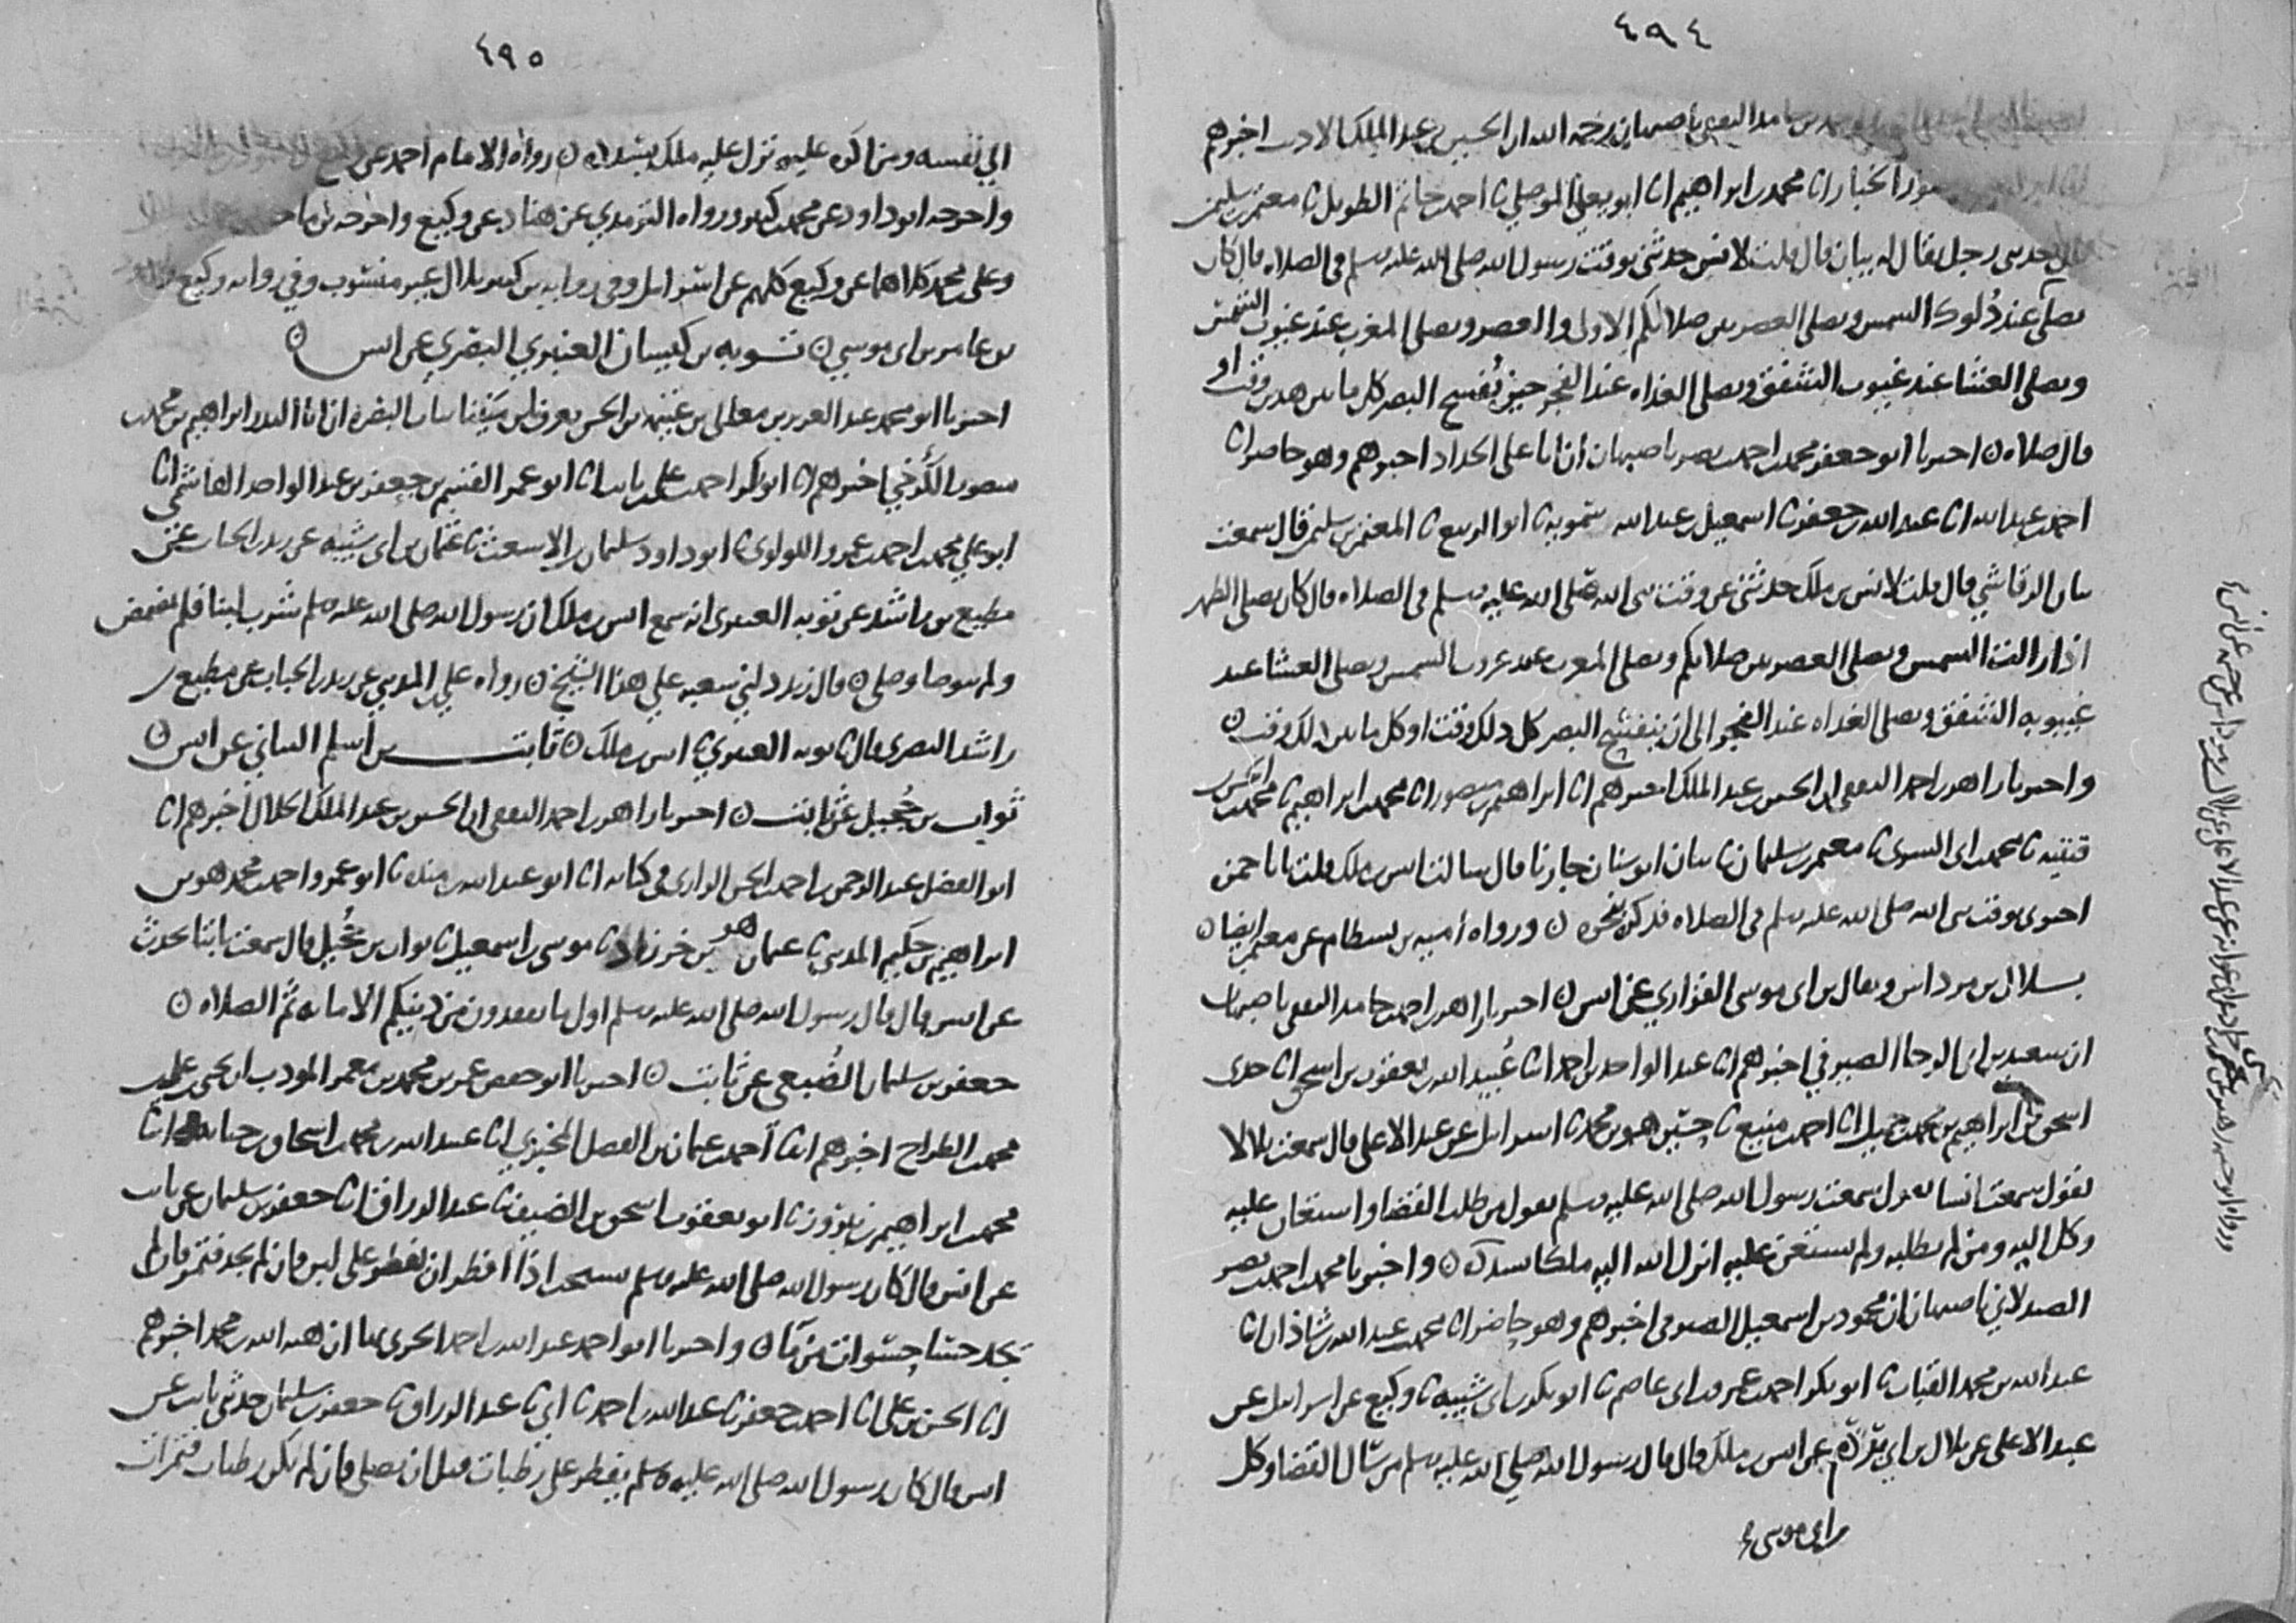 ٤٩٤
حامد الثقفي بأصبهان رحمه الله ان الحسين بن عبد الملك الاديب اخبرهم
الخباز انا محمد بن ابراهيم انا ابو يعلى الموصلي ثا احمد بن حاتم الطويل ثا معتمر بن سليمن
حدثني رجل يقال له بيان قال قلت لانس حدثني بوقت رسول الله صلى الله عليه وسلم في الصلاه قال كان
يصلي عند دُلوك الشمس ويصلي العصر بين صلاتكم الاولى والعصر ويصلي المغرب عند غيوب الشمس
ويصلي العشا عند غيوب الشفق ويصلي الغداه عند الفجر حين يُفسح البصر كل ما بين هدين وقت او
قال صلاه ن اخبرنا ابو جعفر محمد بن احمد بن نصر باصبهان ان ابا علي الحداد اخبرهم وهو حاضر انا
احمد بن عبد الله انا عبد الله بن جعفر ثا اسمعيل بن عبد الله سمويه ثا ابو الربيع ثا المعتمر بن سليمن قال سمعت
بيان الرقاشي قال قلت لانس بن ملك حدثني عن وقت نبي الله صلى الله عليه وسلم في الصلاه قال كان يصلي الظهر
اذا زالت الشمس ويصلي العصر بين صلاتكم ويصلي المغرب عند غروب الشمس ويصلي العشا عند
غيبوبه الشفق ويصلي الغداه عند الفجر الى ان ينفسح البصر كل ذلك وقت او كل ما بين ذلك وقت ن
واخبرنا زاهر بن احمد الثقفي ان الحسين بن عبد الملك اخبرهم انا ابراهيم بن منصور انا محمد بن ابراهيم ثا محمد بن الحسن بن
قتيبه ثا محمد بن ابي السري ثا معتمر بن سليمان ثا بيان ابو سنان جارنا قال سالت انس بن ملك قلت يا با حمزه
اخبرني بوقت نبي الله صلى الله عليه وسلم في الصلاه فذكر نحوه ن ورواه أميه بن بسطام عن معتمر ايضا ن
بــلال بن مرداس ويقال بن ابي موسى الفزاري عن انس ن اخبرنا زاهر بن احمد بن حامد الثقفي باصبهان
ان سعيد بن ابي الرجا الصيرفي اخبرهم انا عبد الواحد بن احمد انا عُبيد الله بن يعقوب بن اسحق انا جدي
اسحق بن ابراهيم بن محمد بن جميل انا احمد بن منيع ثا حسين هو بن محمد ثا اسرائيل عن عبد الاعلى قال سمعت بلالا
يقول سمعت انسا يقول سمعت رسول الله صلى الله عليه وسلم يقول من طلب القضا واستعان عليه
وكل اليه ومن لم يطلبه ولم يستعن عليه انزل الله اليه ملكا يسدده ن واخبرنا محمد بن احمد بن نصر
الصيدلاني باصبهان ان محمود بن اسمعيل الصيرفي اخبرهم وهو حاضر انا محمد بن عبد الله بن شاذان انا
عبد الله بن محمد القباب ثا ابو بكر احمد بن عمرو بن ابي عاصم ثا ابو بكر بن ابي شيبه ثا وكيع عن اسرائيل عن
عبد الاعلى عن بلال بن ابي بردة عن انس بن ملك قال قال رسول الله صلى الله عليه وسلم من سال القضا وكل
بن ابي موسى
٤٩٥
الي نفسه ومن اكره عليه نزل عليه ملك يسدده ن رواه الامام احمد عن وكيع
واخرجه ابو داود عن محمد بن كثير ورواه الترمذي عن هناد عن وكيع واخرجه بن ماجه
وعلي بن محمد كلاهما عن وكيع كلهم عن اسرائيل وفي روايه بن كثير بلال غير منسوب وفي روايه وكيع
بن ابي موسي ن تــوبه بن كيسان العنبري البصري عن انس ن
اخبرنا ابو محمد عبد العزيز بن معالي بن غنيمه بن الحسن يعرف بابن مَنِينا ان ابا البدر ابراهيم بن محمد بن
منصور الكَرْخي اخبرهم انا ابو بكر احمد بن علي بن ثابت انا ابو عمر القسم بن جعفر بن عبد الواحد الهاشمي انا
ابو علي محمد بن احمد بن عمرو اللولوي ثا ابو داود سليمان بن الاشعث ثا عثمان بن ابي شيبه عن زيد بن الحباب عن
مطيع بن راشد عن توبه العنبري انه سمع انس بن ملك ان رسول الله صلى الله عليه وسلم شرب لبنا فلم يمضمض
ولم يتوضا وصلى ن قال زيد دلني شعبه علي هذا الشيخ ن رواه علي بن المديني عن زيد بن الحباب عن مطيع بن
راشد البصري قال ثا توبه العنبري ثا انس بن ملك ن ثابت بن أسلم البناني عن انس ن
ثواب بن حُجيل عن ثابت ن اخبرنا زاهر بن احمد الثقفي ان الحسين بن عبد الملك الخلال اخبرهم انا
ابو الفضل عبد الرحمن بن احمد بن الحسن الرازي في كتابه انا ابو عبد الله بن منده ثا ابو عمرو احمد بن محمد هو بن
ابراهيم بن حكيم المديني ثا عثمان هو بن خرزاد ثا موسى بن اسمعيل ثا ثواب بن حُجيل قال سمعت ثابتا يحدث
عن انس قال قال رسول الله صلى الله عليه وسلم اول ما تفقدون من دينكم الامانه ثم الصلاه ن
جعفر بن سليمان الضُبعي عن ثابت ن اخبرنا ابو حفص عمر بن محمد بن معمر المودب ان يحيى بن علي بن
محمد بن الطراح اخبرهم انا احمد بن عثمان بن الفضل المخبزي انا عبيد الله بن محمد بن اسحاق بن حبابه انا
محمد بن ابراهيم بن نيروز ثا ابو يعقوب اسحق بن الضيف ثا عبد الرزاق انا جعفر بن سليمان عن ثابت
عن انس قال كان رسول الله صلى الله عليه وسلم يستحب اذا افطر ان يفطر على لبن فان لم يجد فتمر فان لم
يجد حسا حسوات من ما ن واخبرنا ابو احمد عبد الله بن احمد الحربي بها ان هبه الله بن محمد اخبرهم
انا الحسن بن علي انا احمد بن جعفر ثا عبد الله بن احمد ثا ابي ثا عبد الرزاق ثا جعفر بن سليمان حدثني ثابت عن
انس قال كان رسول الله صلى الله عليه وسلم يفطر على رطبات قبل ان يصلي فان لم يكن رطبات فتمرات